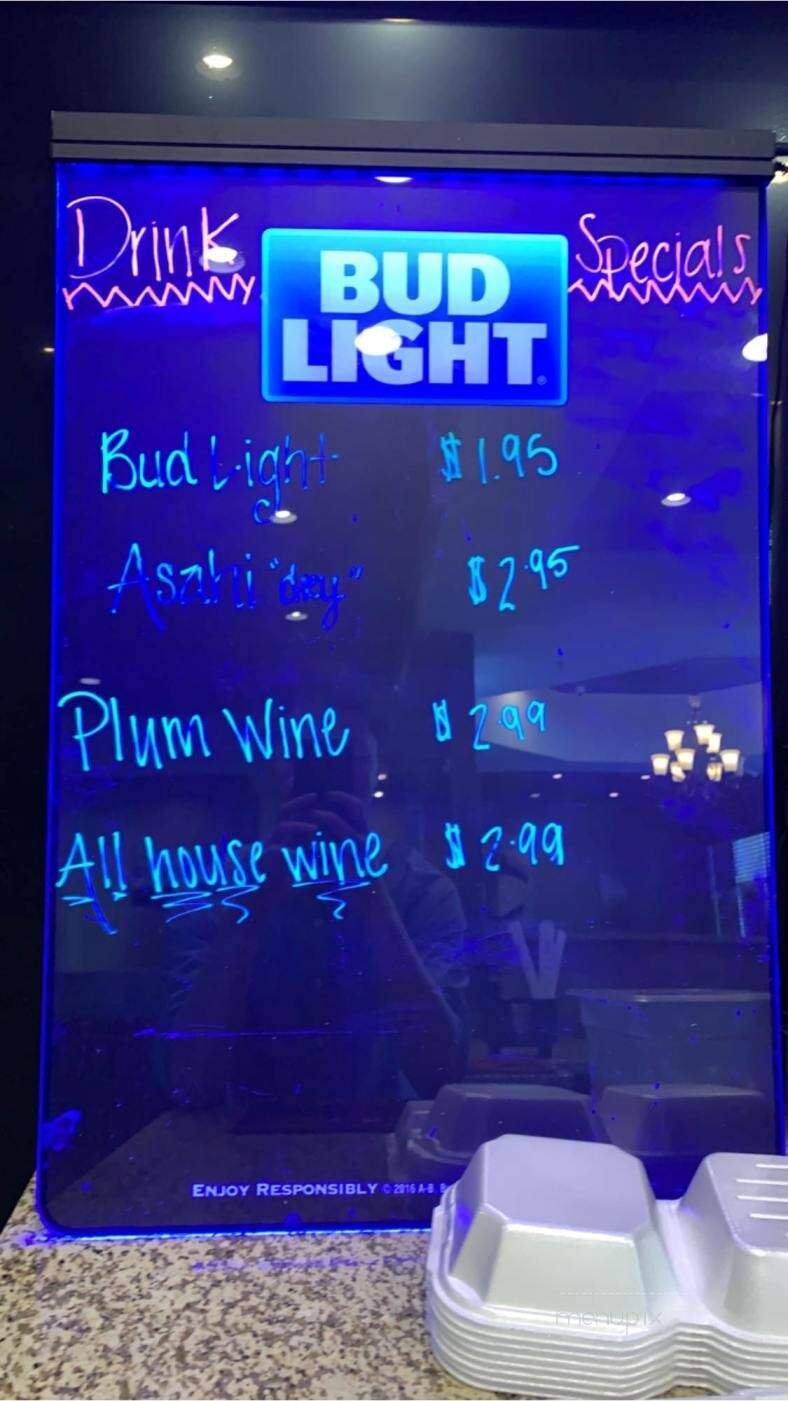 Drink Specials
BUD
LIGHT
Bud Light $1.95
Asahi "dry" $2.95
Plum Wine $2.99
All house wine $2.99
ENJOY RESPONSIBLY © 2016 A-B, 
menupix